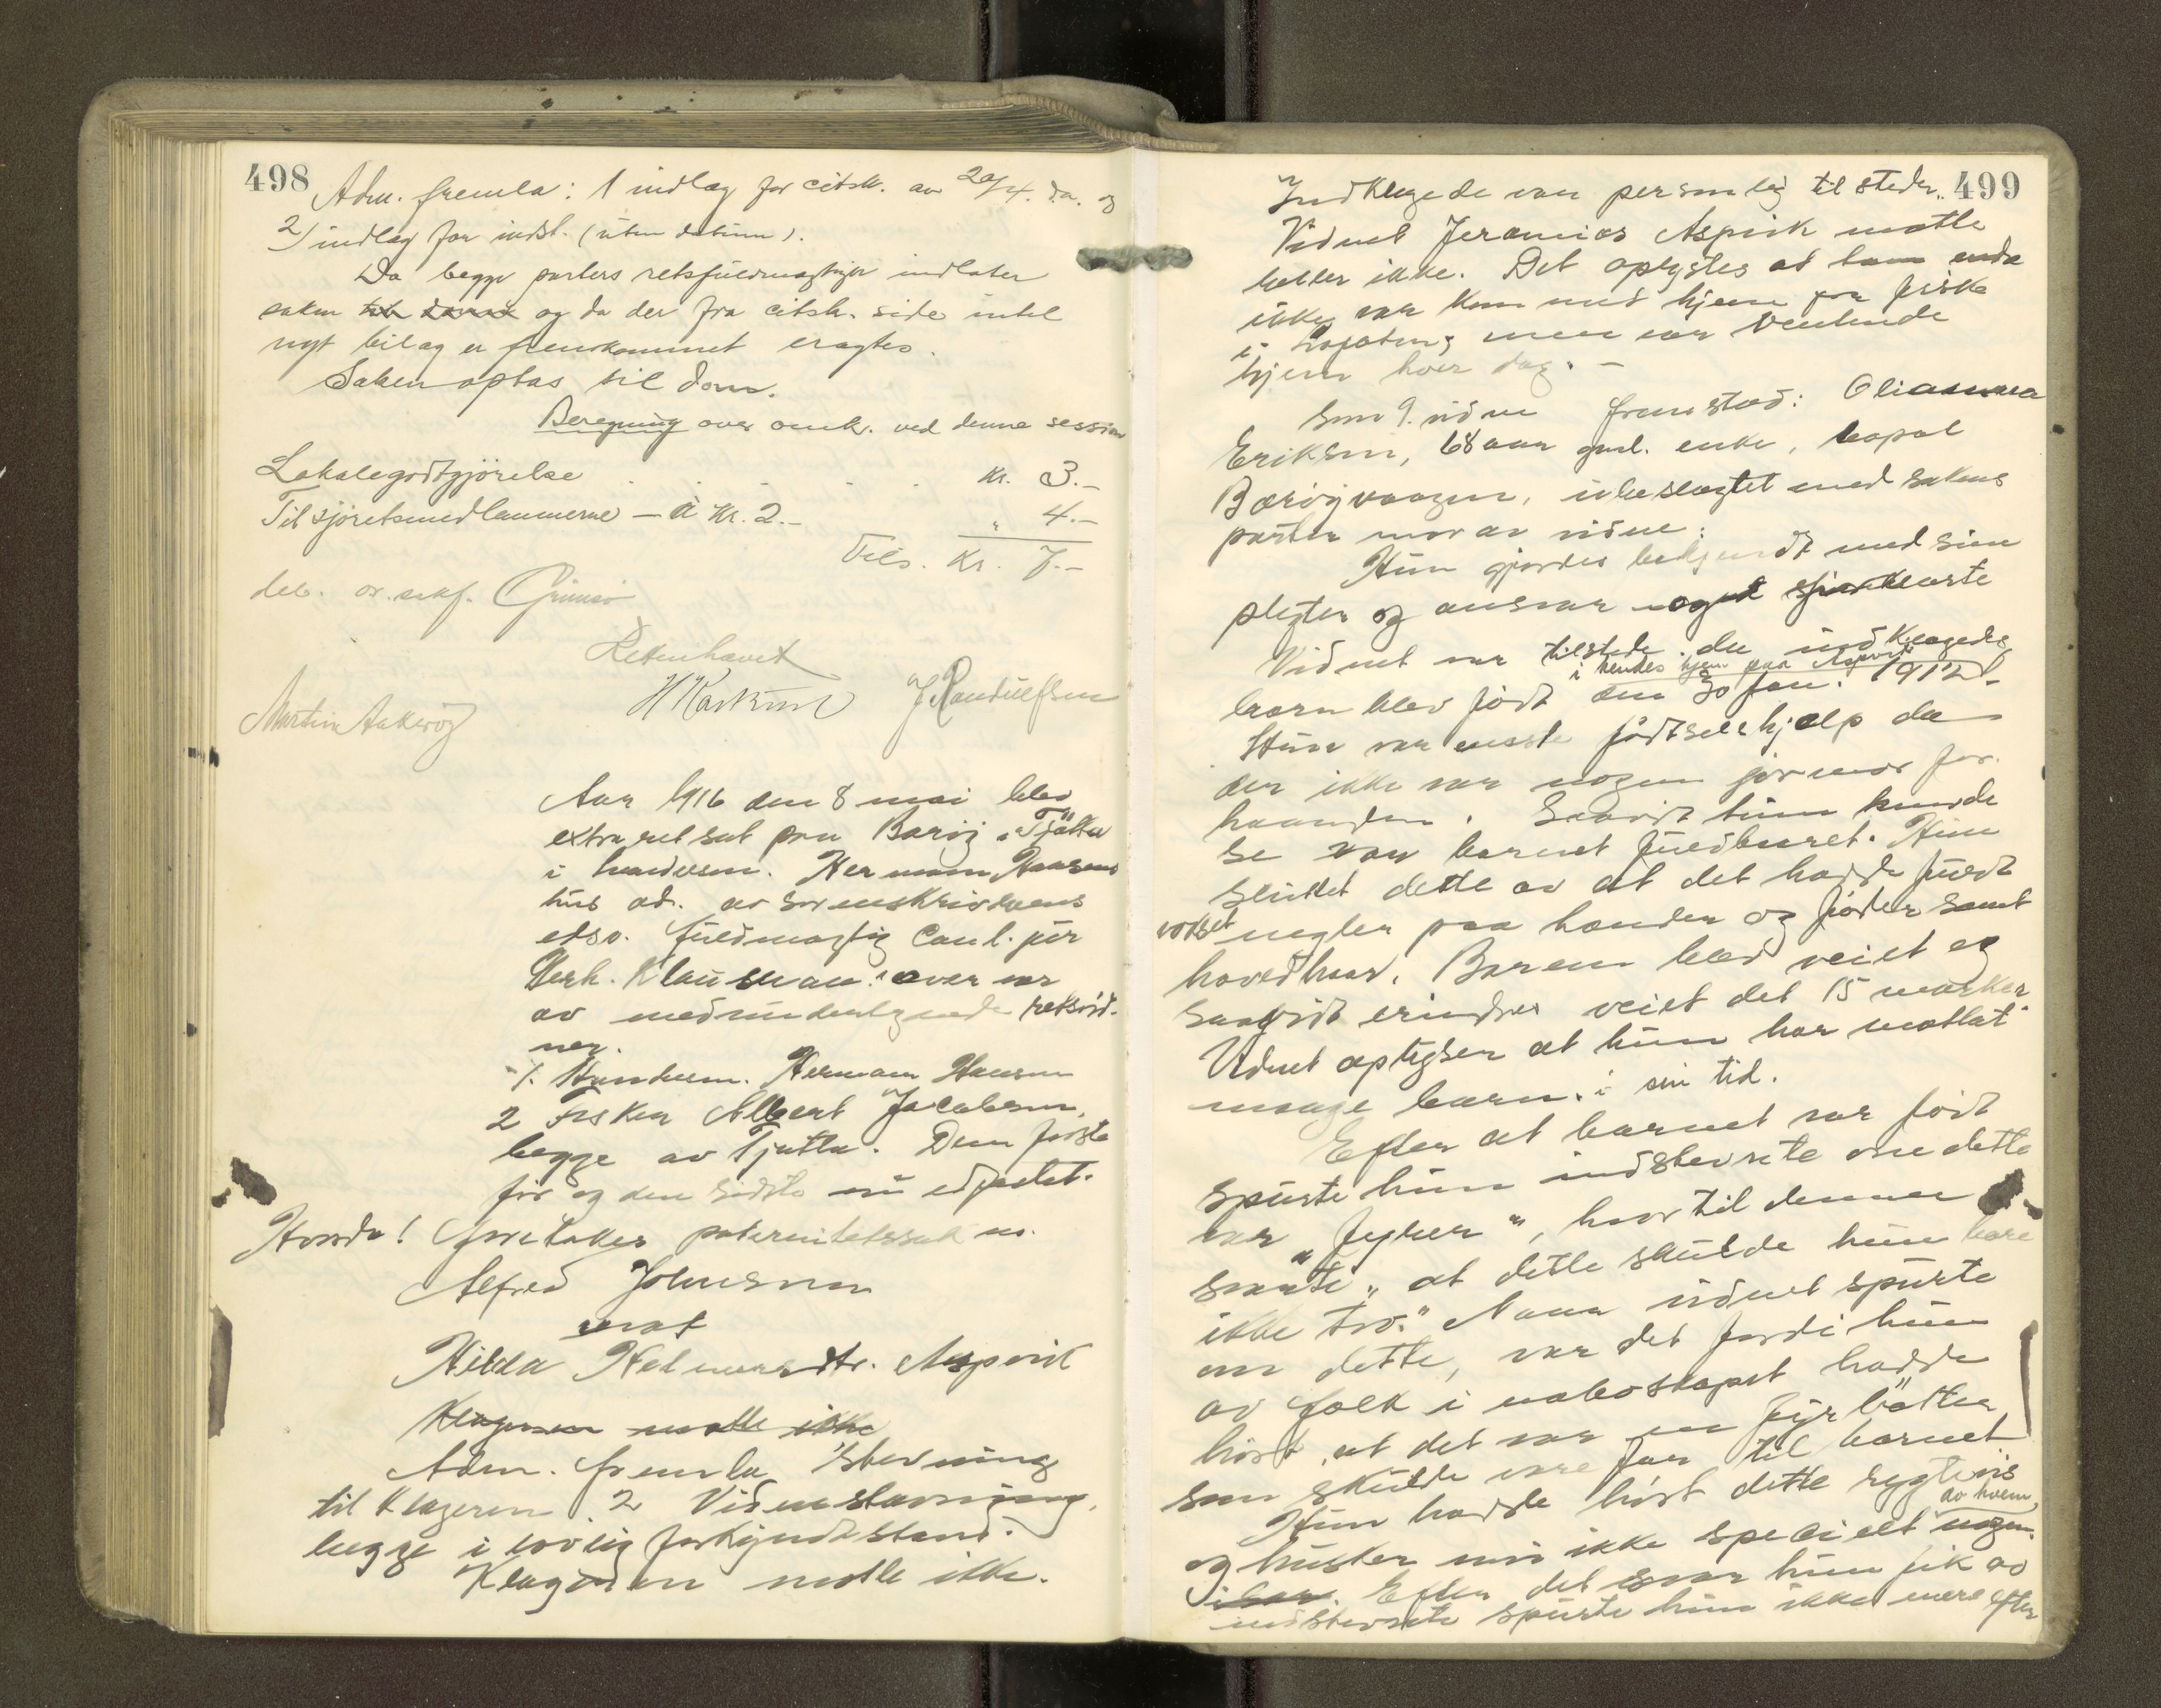 498
Adm. fremla: 1 indlæg for citsk. av 29/4. d.a. og
2/ indlæg for indst. (uten datum).
Da begge parters retsfuldmægtiger indlater
saken til doms og da der fra citsk. side intet
nyt bilag er fremkommet eragtes.
Saken optas til dom.
Beregning over omk. ved denne session
Lokalegodtgjörelse . . . . . kr. 3.-
Til sjöretsmedlemmerne - à kr. 2.- " 4.-
Tils. Kr. 7.-
Retten hævet
Martin Aakvög
J Randulfsen
Aar 1916 den 8 mai blev
extraret sat paa Barøy i Tjøtta
i handelsm. Herman Hansens
hus ad. av sorenskriverens
edsv. fuldmægtig cand. jur
Klausman. over var
av medundertegnede retsvid-
ner.
1. Handelsm. Herman Hansen
2 Fisker Albert Jacobsen,
begge av Tjøtta. Den første
før og den sidste nu edfæstet.
Hvorda! Foretakes paternitetssak nr.
Alfred Johnsen
mot
Hilda Helmersdtr. Aspvik
Klageren møtte ikke
Adm. fremla 1 stevning
til klageren 2 Vidnestevning,
begge i lovlig forkyndt stand.
Klageren møtte ikke.
499
Indklagede var personlig tilstede.
Vidnet Jeramias Aspvik møtte
heller ikke. Det oplystes at han enda
ikke var kommet hjem fra fiske
i Lofoten, men var ventende
hjem hver dag. -
Som 9. vidne fremstod:
Eriksen, 68 aar gml. enke, bopæl
Barøyvaagen, ubeslægtet med sakens
parter mor av vidne:
Hun gjordes bekjendt med sine
plegter og ansvar og forklarte
Vidnet var tilstede da indklagedes
i hendes hjem paa Aspvik
barn blev født den 30 jan. 1912.
Hun var eneste fødselshjælp da
der ikke var nogen jormor for
haanden. Saavidt hun kunde
se var barnet fuldbaaret. Hun
sluttet dette av at det hadde fuldt
vokset negler paa hænder og føtter samt
hovedhaar. Barnet blev veiet og
saavidt erindres veiet det 15 marker.
Vidnet oplyser at hun har motlat
mange barn i sin tid.
Efter at barnet var født
spurte hun indstevnte om dette
var " ", hvortil denne
svarte "at dette skulde hun bare
ikke tro." Naar vidnet spurte
om dette, var det fordi hun
av folk i naboskapet hadde
hørt, at det var en fyrbøtter
som skulde være far til barnet
Hun hadde hørt dette rygtevis
av hvem
og husker nu ikke specielt nogen
. Efter det svar hun fik av
indstevnte spurte hun ikke mere efter